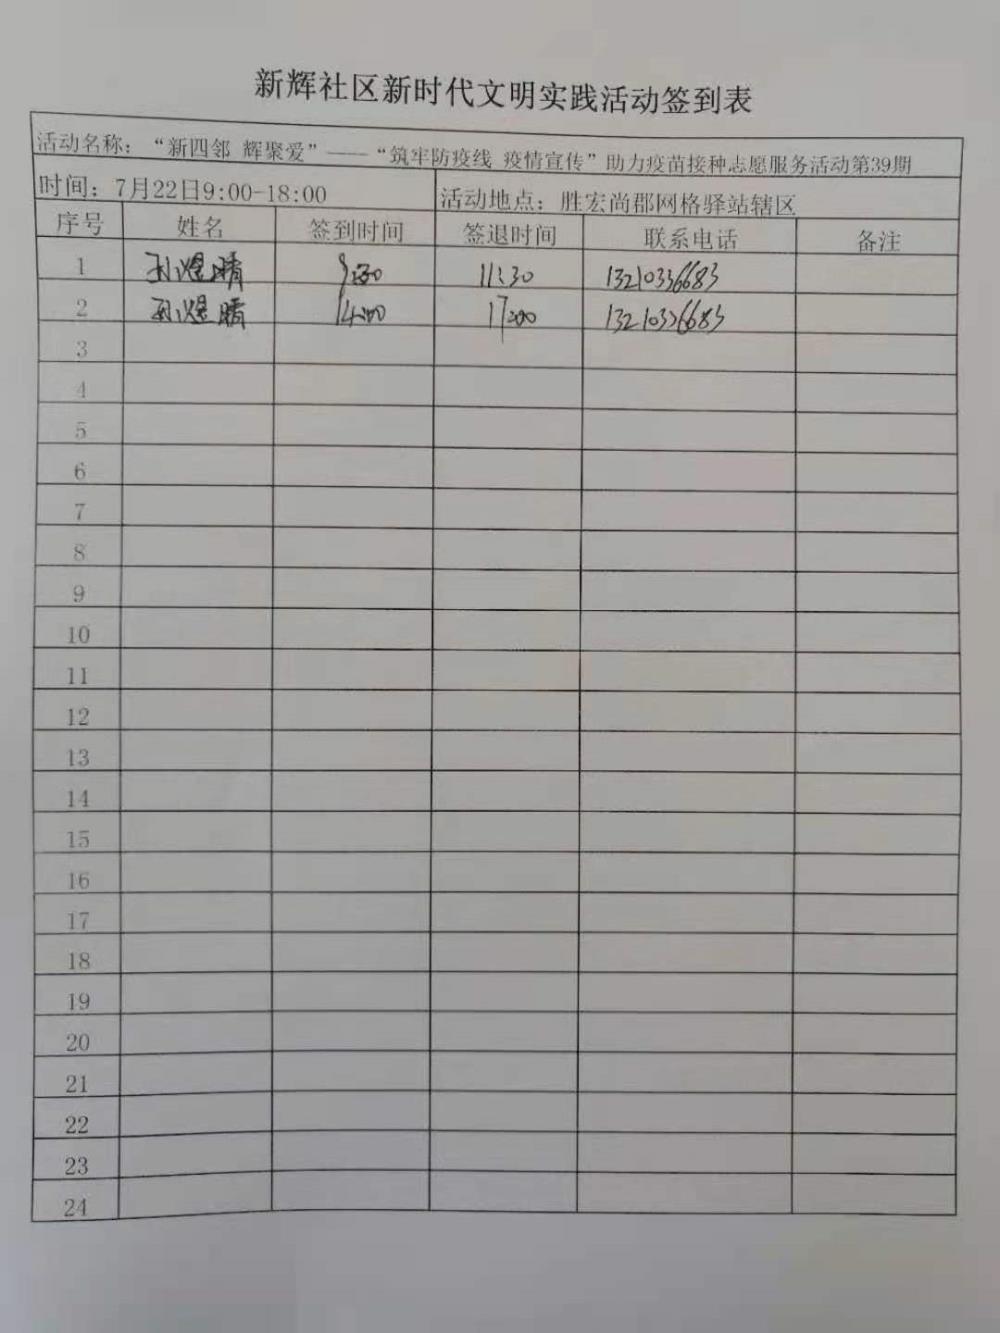 新辉社区新时代文明实践活动签到表
活动名称：“新四邻 辉聚爱”——“筑牢防疫线 疫情宣传”助力疫苗接种志愿服务活动第39期
时间：7月22日9:00-18:00 活动地点：胜宏尚郡网格驿站辖区
序号 姓名 签到时间 签退时间 联系电话 备注
1 孙煜晴 9:30 11:30 13210336683
2 孙煜晴 14:00 17:00 13210336683
3
4
5
6
7
8
9
10
11
12
13
14
15
16
17
18
19
20
21
22
23
24